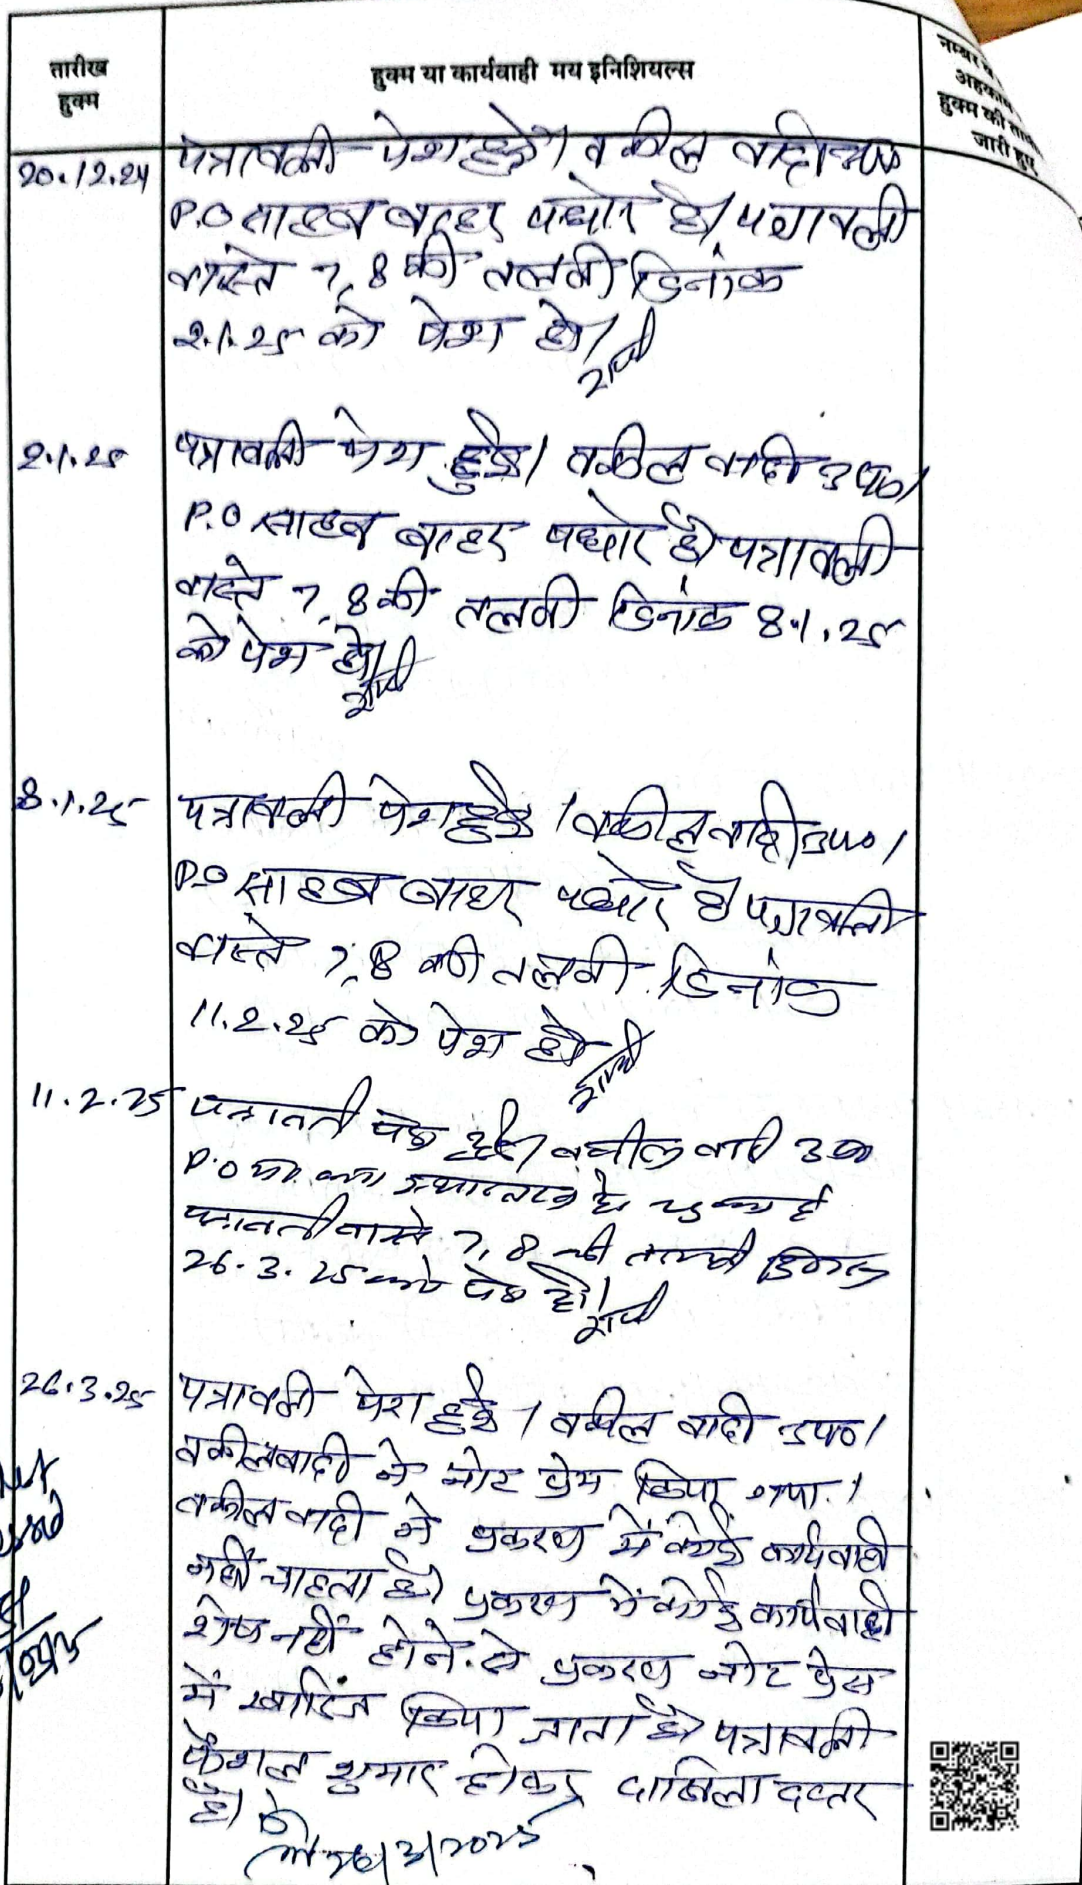 तारीख
हुक्म
हुक्म या कार्यवाही मय इनिशियल्स
नम्बर व
अहकाम
हुक्म की
जारी हुए
20.12.24
पत्रावली पेश हुई। वकील वादी उप०
P.O साहब बाहर पधारे है। पत्रावली
वास्ते 7,8 की तलबी दिनांक
2.1.25 को पेश हो।
2.1.25
पत्रावली पेश हुई। वकील वादी उप०।
P.O साहब बाहर पधारे है। पत्रावली
वास्ते 7,8 की तलबी दिनांक 8.1.25
को पेश हो।
8.1.25
पत्रावली पेश हुई। वकील वादी उप०।
P.O साहब बाहर पधारे है। पत्रावली
वास्ते 7,8 की तलबी दिनांक
11.2.25 को पेश हो।
11.2.25
पत्रावली पेश हुई। वकील वादी उप०
P.O का स्थानान्तरण हो चुका है
पत्रावली वास्ते 7,8 की तलबी दिनांक
26.3.25 को पेश हो।
26.3.25
पत्रावली पेश हुई। वकील वादी उप०।
वकील वादी ने नोट प्रेस किया गया।
वकील वादी ने प्रकरण में कोई कार्यवाही
नहीं चाहता है। प्रकरण में कोई कार्यवाही
शेष नहीं होने से प्रकरण नोट प्रेस
में खारिज किया जाता है। पत्रावली
फैशल शुमार होकर दाखिला दफ्तर
हो।
26/3/2025